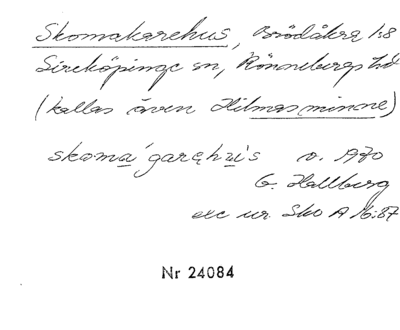 Skomakarehus, Brödåkra 1:8
Sireköpinge sn, Rönnebergs hd
(kallas även Hilmas minne)
skoma´garęhu̱'s v. 1970
G. Hallberg
exc ur Sko A 16:87
Nr 24084